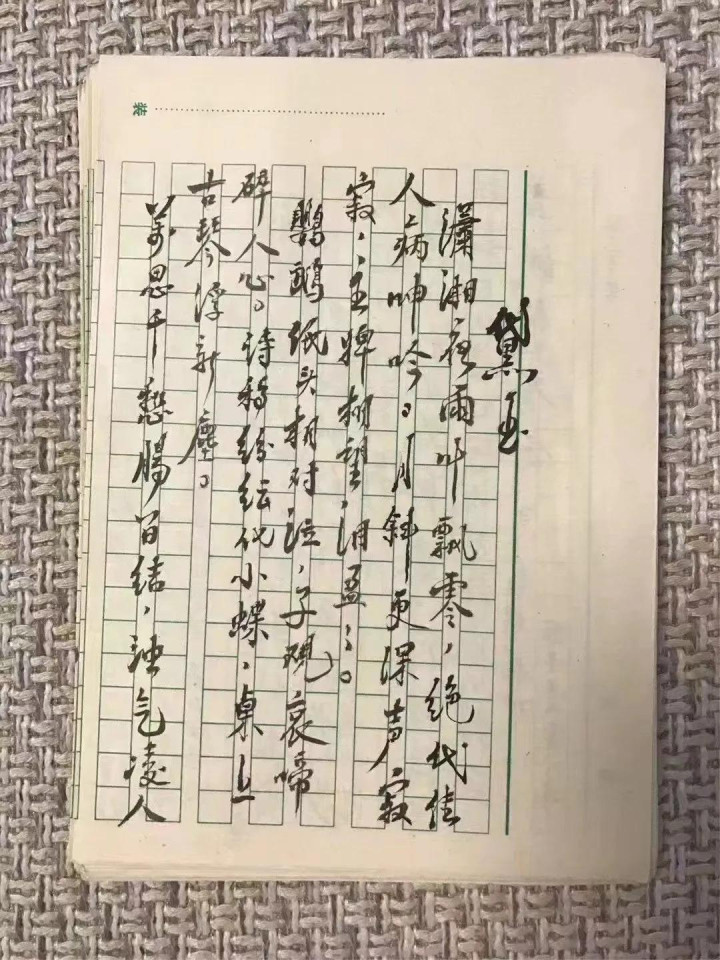 装
黛玉
瀟湘夜雨叶飘零，绝代佳
人病呻吟。月斜更深声寂
寂，玉牌相望，泪盈盈。
鹦鹉低头相对泣，子规哀啼
碎人心。诗稿纷纭化小蝶，桌上
古琴浮新塵。
万思千愁腸百结，浊气凌人